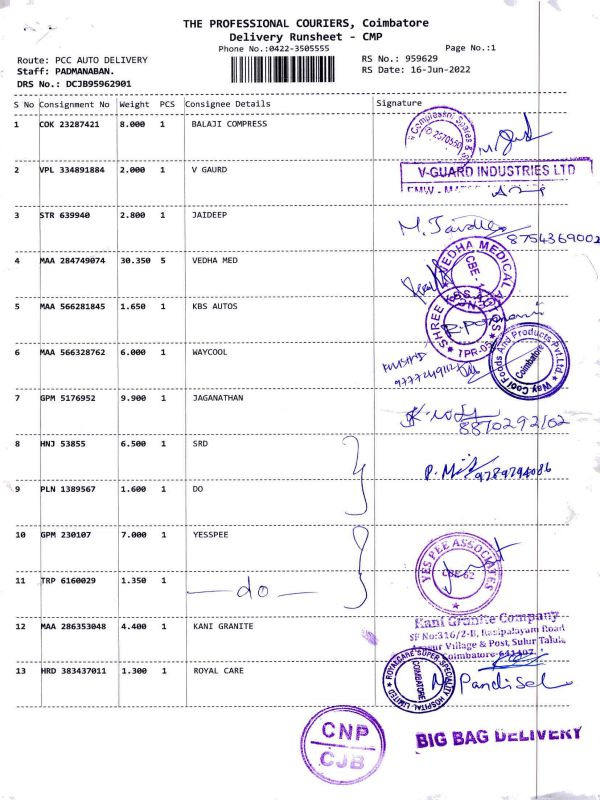 THE PROFESSIONAL COURIERS, Coimbatore
Delivery Runsheet - CMP
Phone No.:0422-3505555
Page No.:1
Route: PCC AUTO DELIVERY
RS No.: 959629
Staff: PADMANABAN.
RS Date: 16-Jun-2022
DRS No.: DCJB95962901
S No Consignment No Weight PCS Consignee Details Signature
1 COK 23287421 8.000 1 BALAJI COMPRESS
2570550
2 VPL 334891884 2.000 1 V GAURD
V-GUARD INDUSTRIES LTD
3 STR 639940 2.800 1 JAIDEEP
M. Jaideep
8754369002
4 MAA 284749074 30.350 5 VEDHA MED
VEDHA MEDICAL
CBE - 1
5 MAA 566281845 1.650 1 KBS AUTOS
SHREE KBS AUTOS
6 MAA 566328762 6.000 1 WAYCOOL
Way Cool Foods And Products Pvt.Ltd.
Coimbatore
7 GPM 5176952 9.900 1 JAGANATHAN
8870292102
8 HNJ 53855 6.500 1 SRD
9789794086
9 PLN 1389567 1.600 1 DO
10 GPM 230107 7.000 1 YESSPEE
YES PEE ASSOCIATES
CBE-62
11 TRP 6160029 1.350 1
— do —
12 MAA 286353048 4.400 1 KANI GRANITE
Kani Granite Company
SF No:316/2-B, Rasipalayam Road
Village & Post, Sulur Taluk
Coimbatore-641402.
13 HRD 383437011 1.300 1 ROYAL CARE
ROYALCARE SUPER SPECIALITY HOSPITAL LIMITED
COIMBATORE
CNP
CJB
BIG BAG DELIVERY